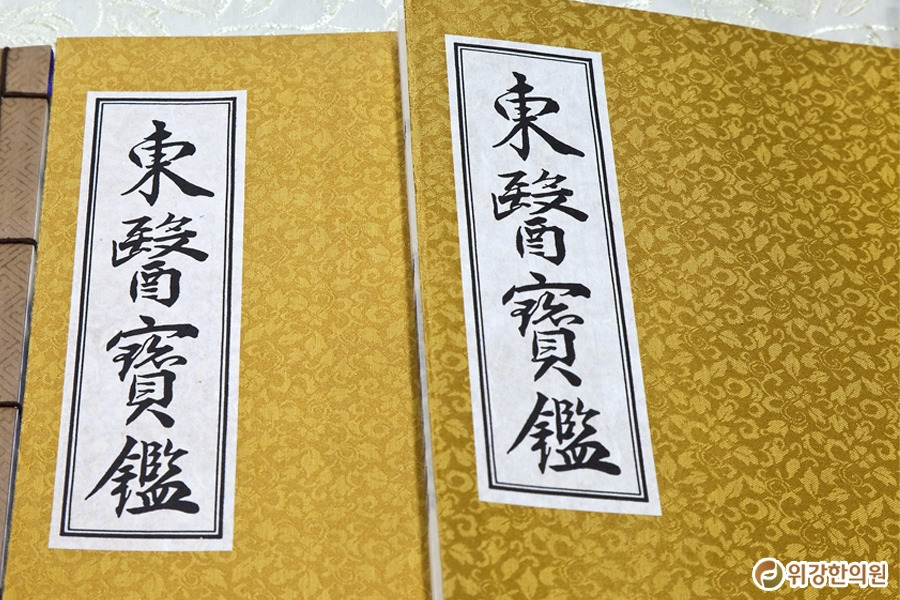 東醫寶鑑
東醫寶鑑
위강한의원